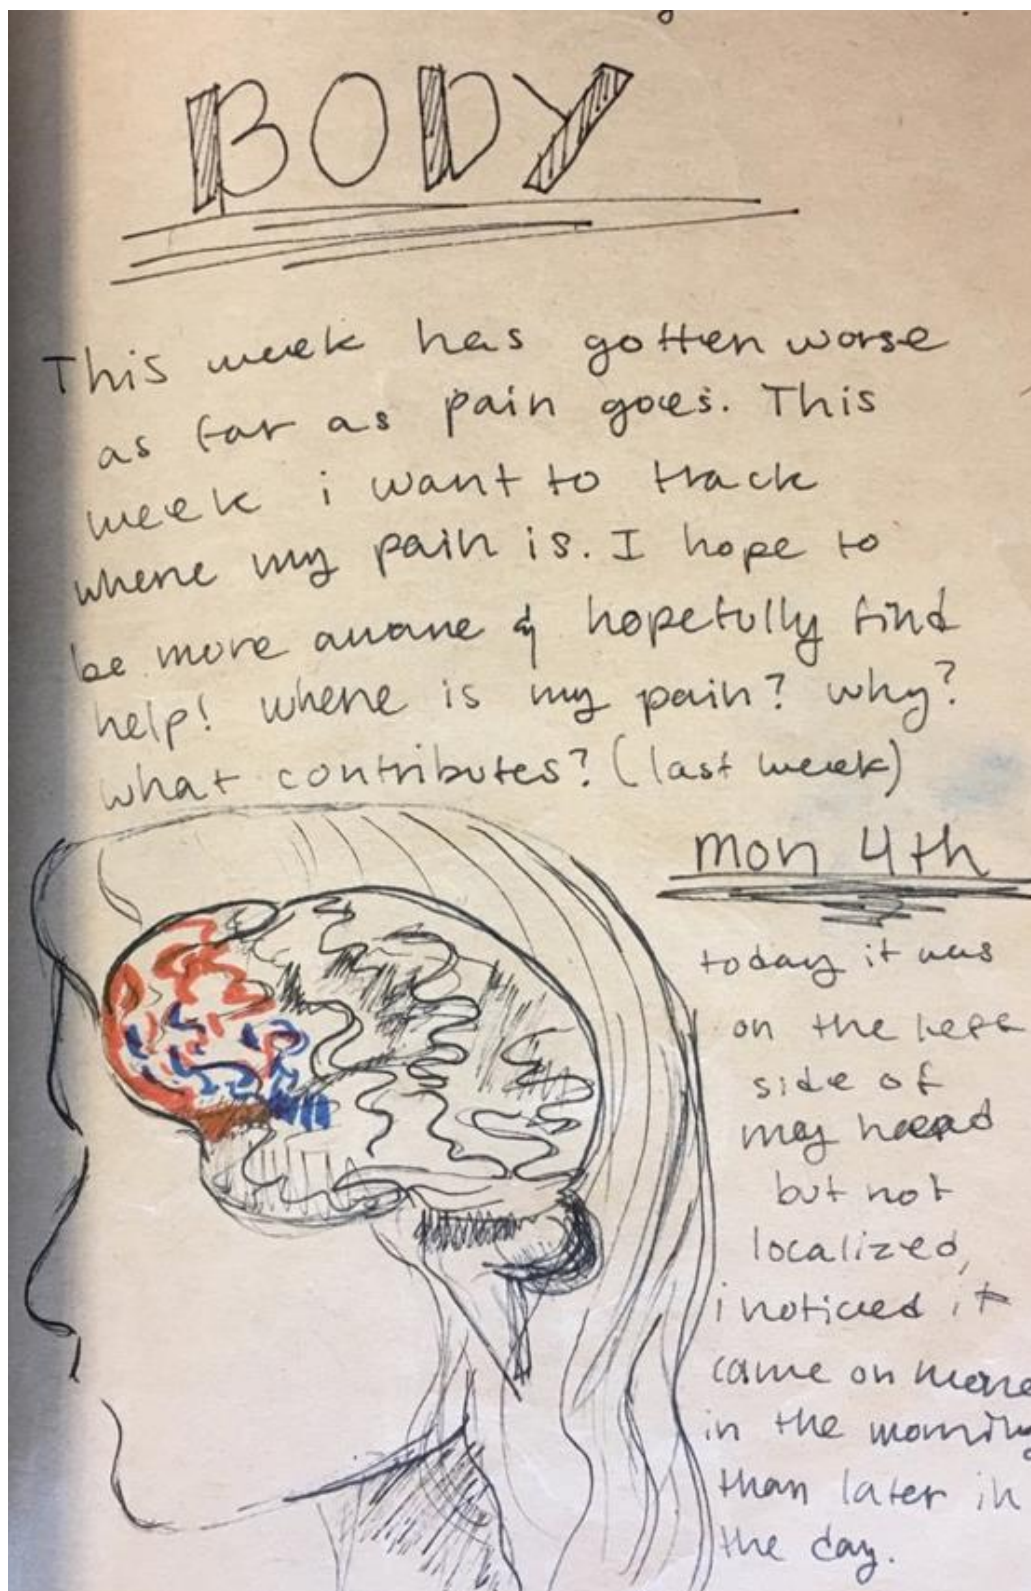 BODY
This week has gotten worse
as far as pain goes. This
week i want to track
where my pain is. I hope to
be more aware & hopefully find
help! where is my pain? why?
what contributes? (last week)
mon 4th
today it was
on the left
side of
my head
but not
localized,
i noticed it
came on more
in the morning
than later in
the day.